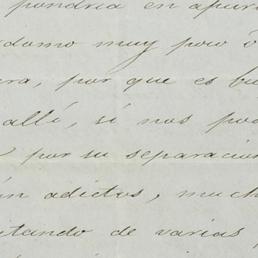 pondría en apur
damo muy poco ó
ra, por que es bu
allí, si nos po
por su separacion
n adictos, much
tando de varias